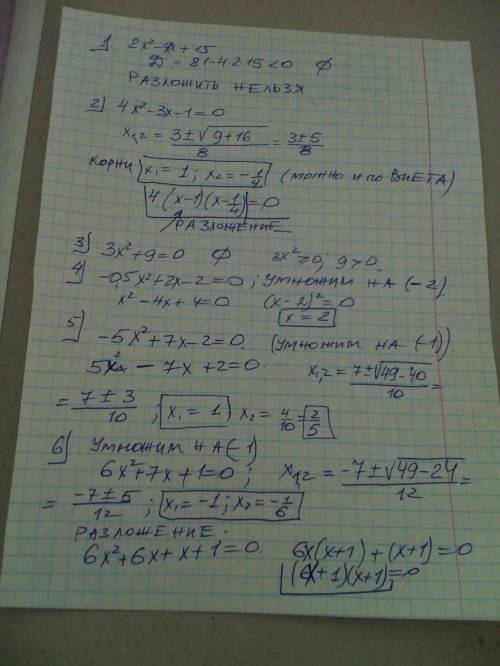 1. 2x²-9x+15
D = 81-4·2·15<0 ∅
РАЗЛОЖИТЬ НЕЛЬЗЯ
2) 4x²-3x-1=0
x₁,₂ = (3±√(9+16))/8 = (3±5)/8
корни) x₁=1; x₂=-1/4 (можно и по ВИЕТА)
4(x-1)(x-1/4)=0
РАЗЛОЖЕНИЕ
3) 3x²+9=0 ∅ 3x²≥0; 9>0
4) -0,5x²+2x-2=0; Умножим НА (-2)
x²-4x+4=0. (x-2)²=0
x=2
5) -5x²+7x-2=0. (Умножим НА (-1))
5x²-7x+2=0. x₁,₂=(7±√(49-40))/10=
= (7±3)/10; x₁=1; x₂=4/10=2/5
6) Умножим НА (-1)
6x²+7x+1=0; x₁,₂=(-7±√(49-24))/12=
= (-7±5)/12; x₁=-1; x₂=-1/6
РАЗЛОЖЕНИЕ.
6x²+6x+x+1=0. 6x(x+1)+(x+1)=0
(6x+1)(x+1)=0